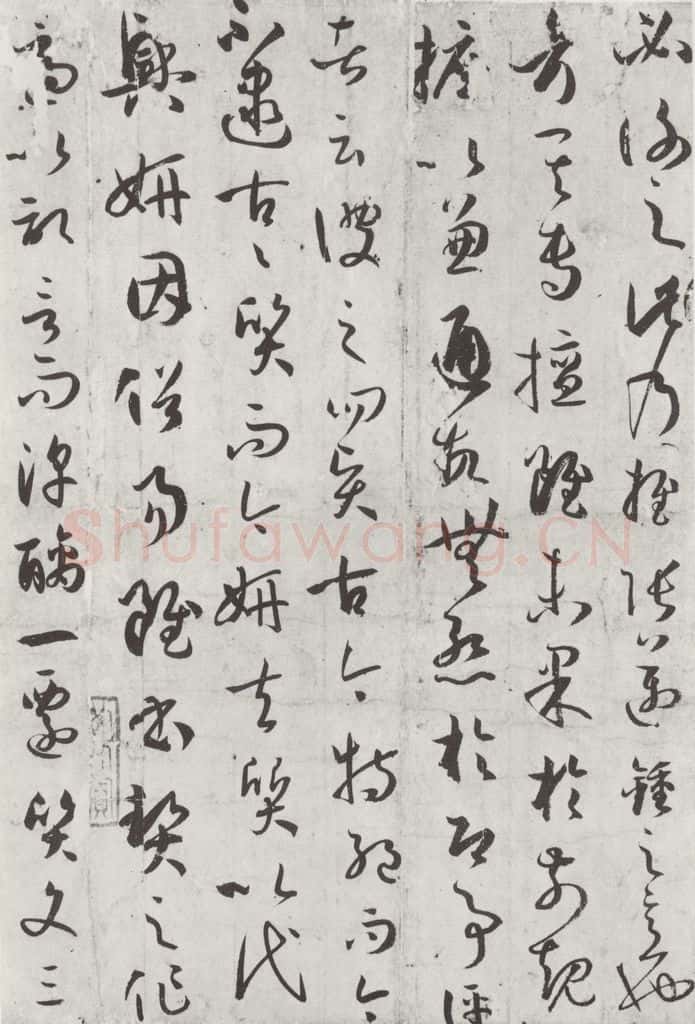 必謝之此乃推張邁鍾之意也
考其專擅雖未果於前規
摭以兼通故無慚於即事評
者云彼之四賢古今特絕而今
不逮古〻質而今妍夫質以代
興妍因俗易雖書契之作
適以記言而淳醨一遷質文三
Shufawang.CN